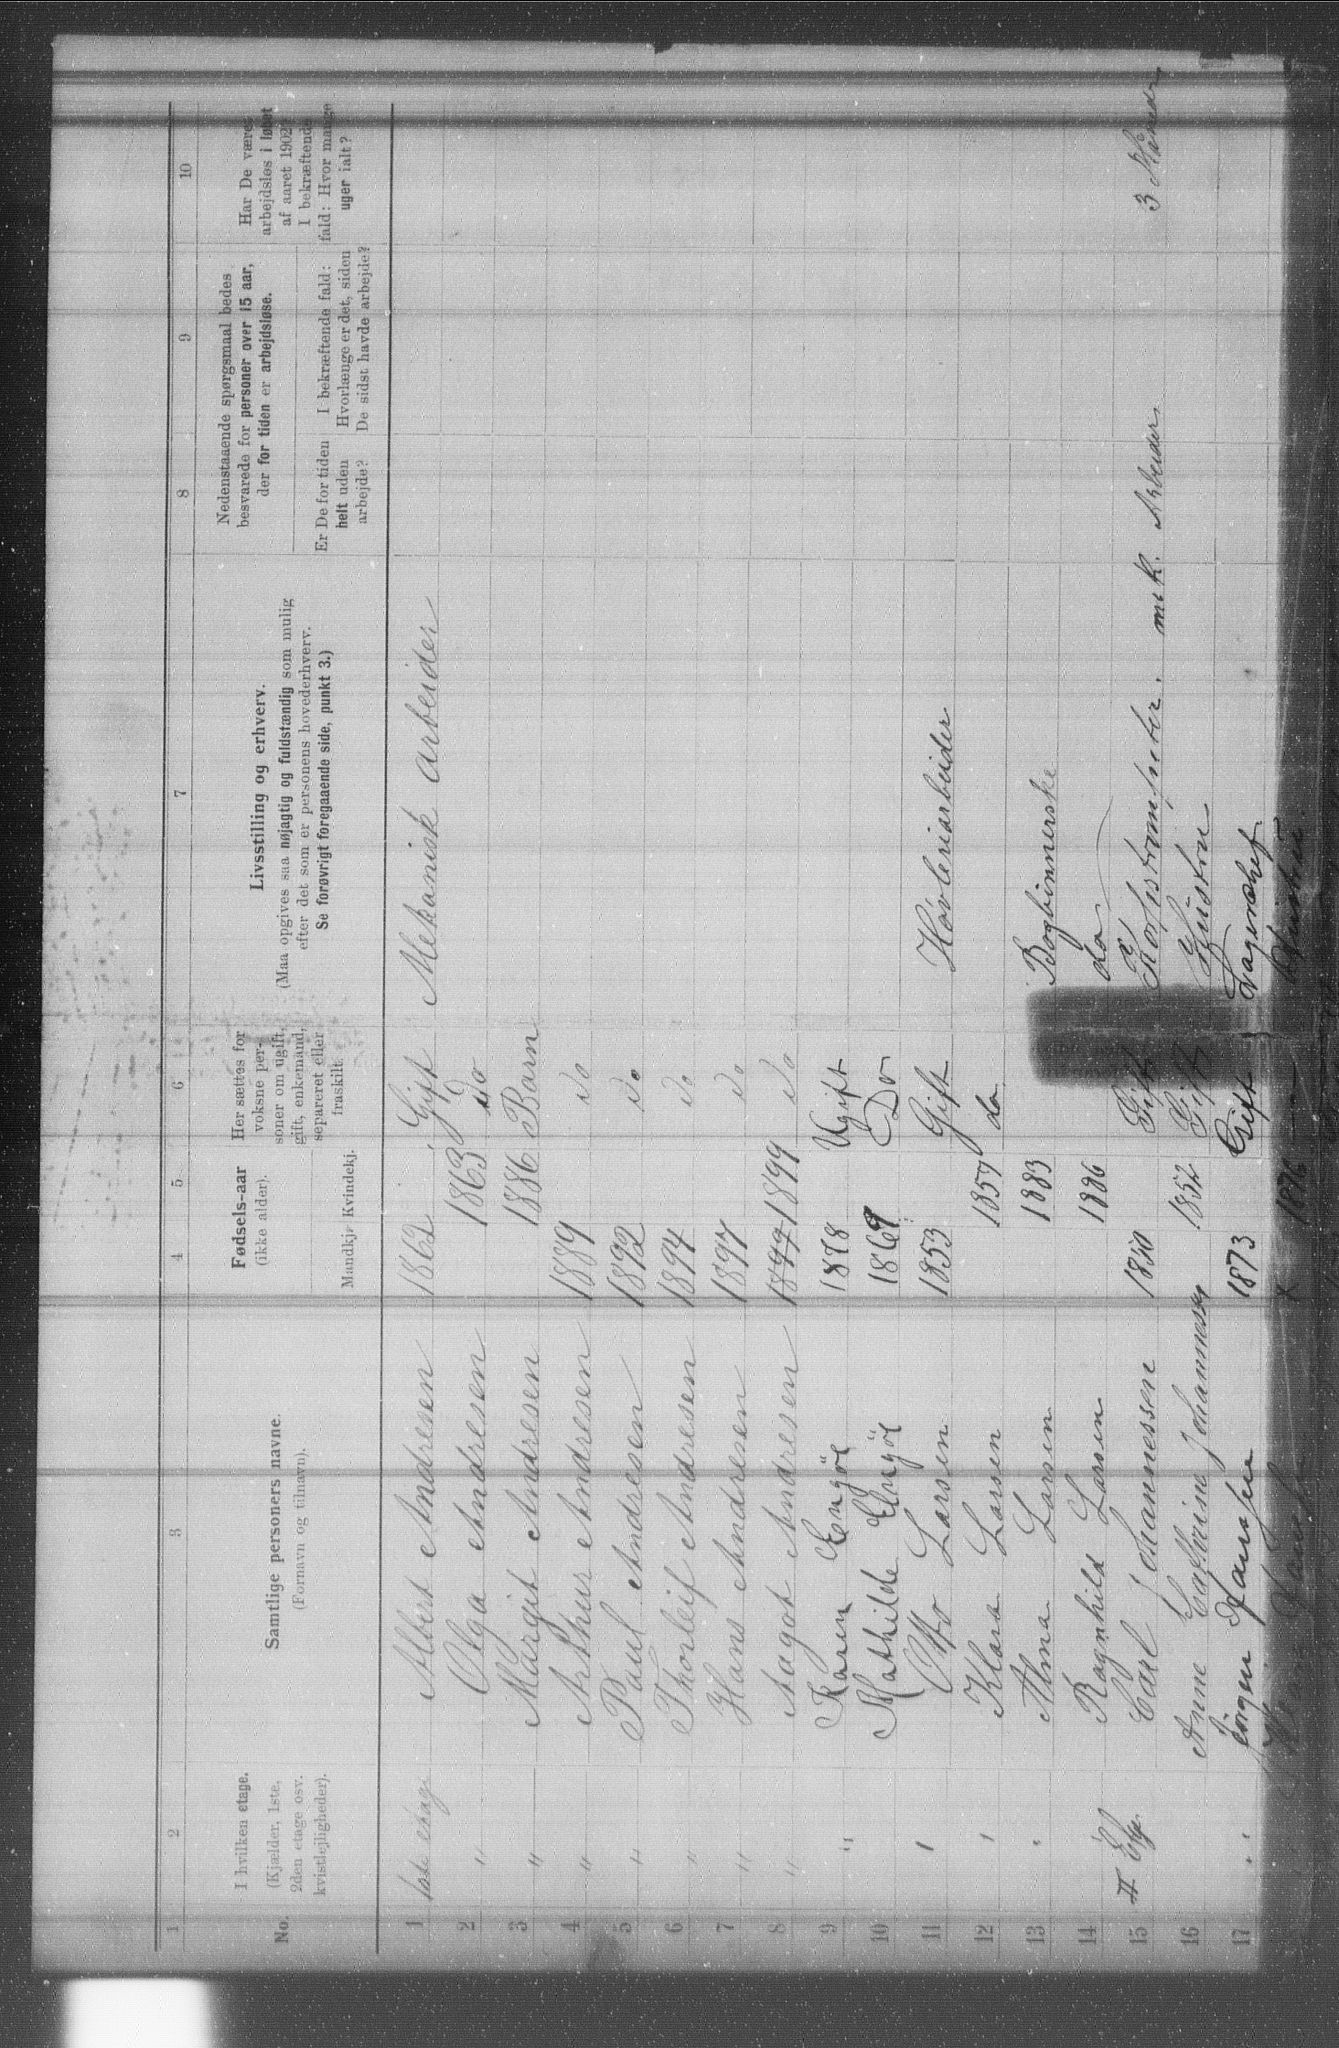 1 2 3 4 5 6 7 8 9 10
No.
I hvilken etage.
(Kjælder, 1ste,
2den etage osv.
kvistlejligheder).
Samtlige personers navne.
(Fornavn og tilnavn).
Fødsels-aar
(ikke alder).
Mandkjr Kvindekj.
Her sættes for
voksne per-
soner om ugift,
gift, enkemand,
separeret eller
fraskilt
Livsstilling og erhverv.
(Maa opgives saa nøjagtig og fuldstændig som mulig
efter det som er personens hovederhverv.
Se forøvrigt foregaaende side, punkt 3.)
Nedenstaaende spørgsmaal bedes
besvarede for personer over 15 aar,
der for tiden er arbejdsløse.
Er De for tiden
helt uden
arbejde?
I bekræftende fald:
Hvorlænge er det, siden
De sidst havde arbejde?
Har De været
arbejdsløs i løbet
af aaret 1902?
I bekræftende
fald: Hvor mange
uger ialt?
1 1ste etage Albert Andresen 1862 Gift Mekanisk arbeider
2 " Olga Andresen 1863 do
3 " Margit Andresen 1886 Barn
4 " Arthur Andresen 1889 do
5 " Paul Andresen 1892 do
6 " Thorleif Andresen 1894 do
7 " Hans Andresen 1897 do
8 " Aagot Andresen 1899 1899 do
9 " Karen Engöe 1878 Ugift
10 Mathilde Engöe 1869 Do
11 " Otto Larsen 1853 Gift Høvleriarbeider
12 " Klara Larsen 1857 do
13 " Alma Larsen 1883 Bogbinnerske
14 Ragnhild Larsen 1886 do
15 II Etg. Carl Johannessen 1850 Gift mek. Arbeider 3 Maaneder
16 Anne Cathrine Johannessen 1852 Gift Hustru
17 " Jörgen Hansen 1873 Gift
Hansen 1876 Hustru